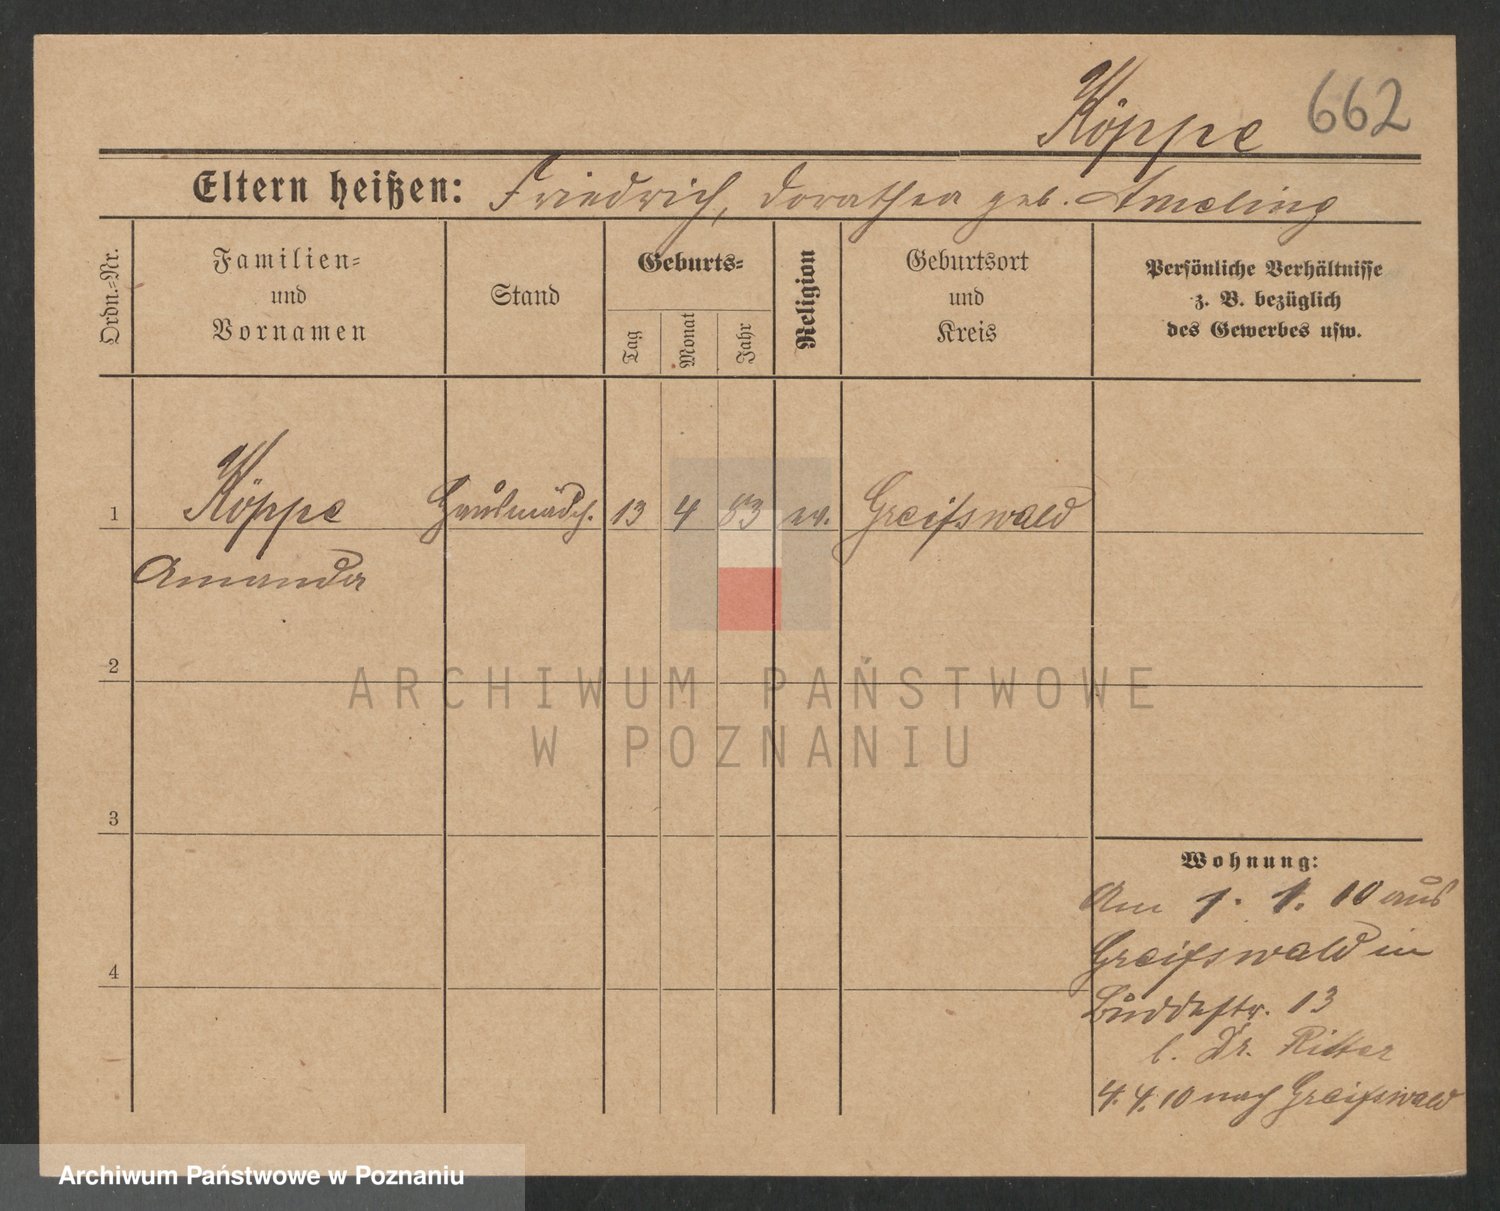 Köppe 662
Eltern heißen: Friedrich, Dorothea geb. Ameling
Ordn.-Nr.
Familien-
und
Vornamen
Stand
Geburts-
Tag
Monat
Jahr
Religion
Geburtsort
und
Kreis
Persönliche Verhältnisse
z. B. bezüglich
des Gewerbes usw.
1 Köppe Hausmädch. 13 4 83 ev. Greifswald
Amanda
2
ARCHIWUM PAŃSTWOWE
W POZNANIU
3
Wohnung:
Am 1. 1. 10 aus
Greifswald in
4
Buddestr. 13
b. Dr. Ritter
4. 4. 10 nach Greifswald
Archiwum Państwowe w Poznaniu